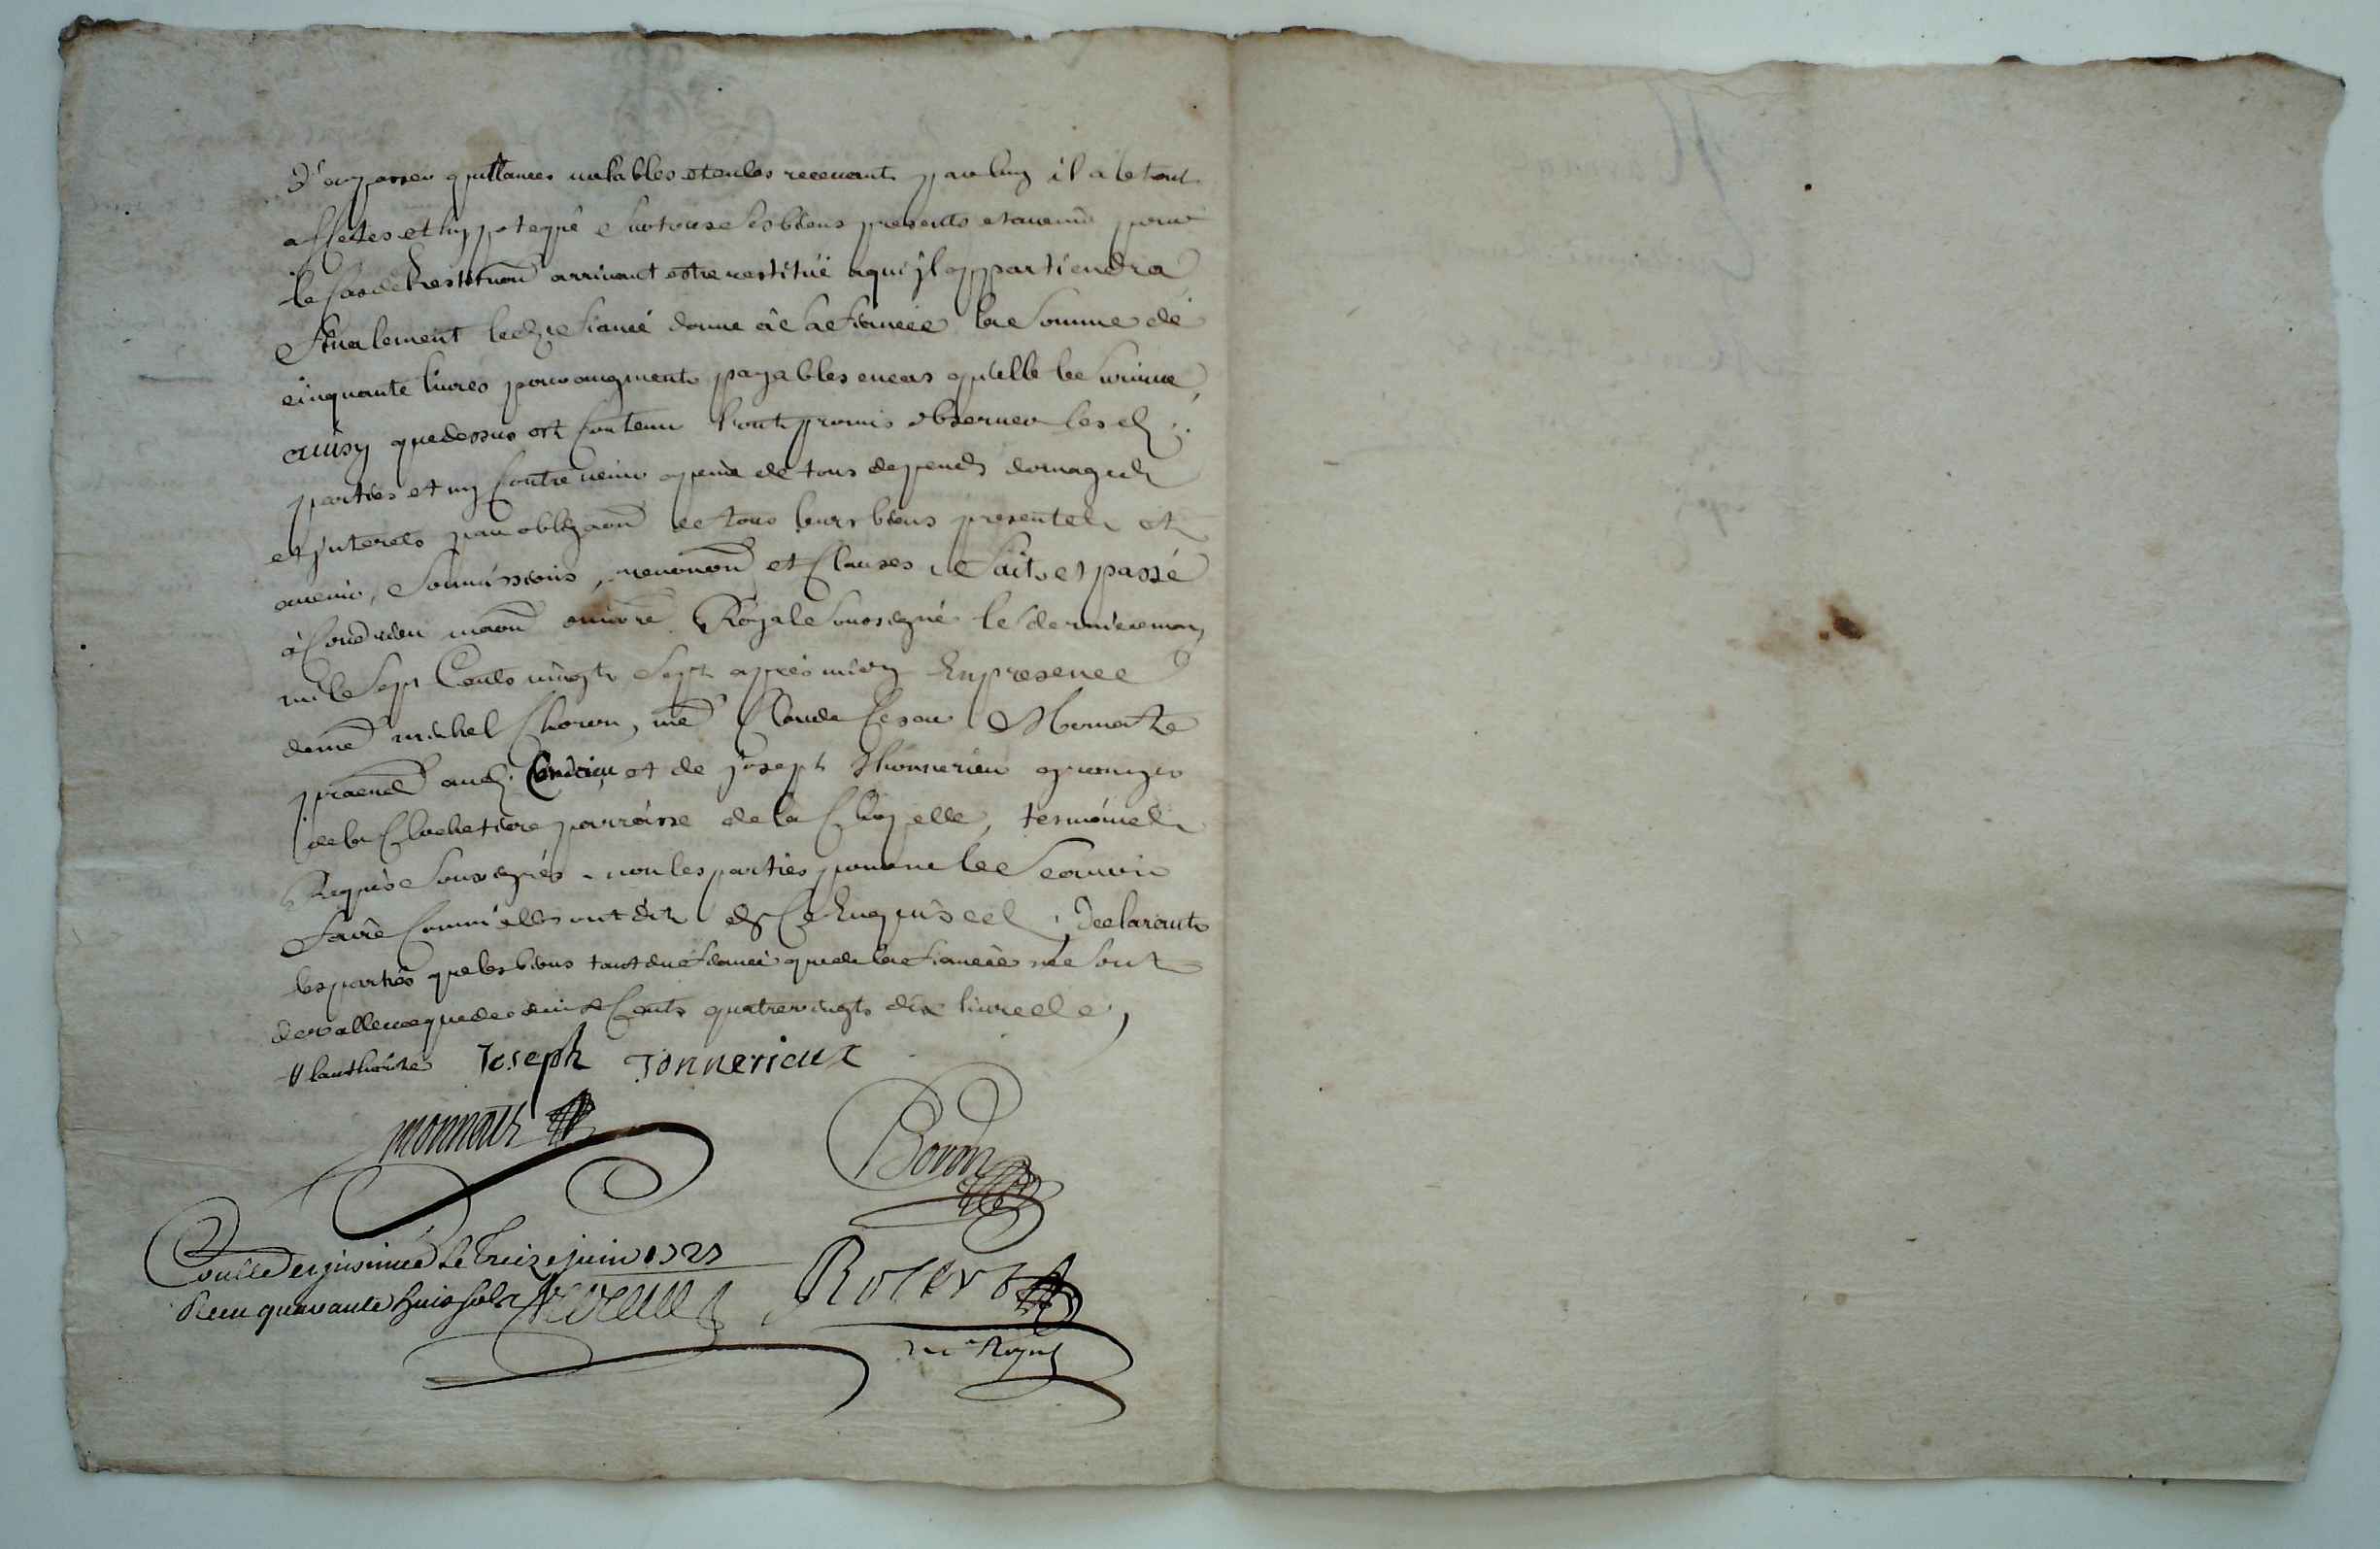 D'en passer quittances valables et en les recevant par luy il a le tout
affectes et hypotequé sur tous ses biens presents et avenir pour
le cas de restituoñ arrivant estre restitué a qui jl appartiendra
finalement led. fiancé donne a sa fiancée la somme de
cinquante livres pour augment payables en cas qu'elle le survive
ainsy que dessus est contenu l'ont promis observer lesd.
parties et ny contrevenir a peine de tous depends domages
et jnterets par obligaoñ de tous leurs biens presents et
avenir, soumissions, renonoñ et clauses, fait et passé
à Condrieu maoñ du noṙe Royal soussigné le dernier may
mil sept cents vingt sept apres midy En presence
de mẽ michel , mẽ Claude Cesar
praticñ aud. Condrieu et de joseph Thonnerieu granger
de la parroisse de la Chapelle, tesmoins
Requis soussignés non les parties pour ne le scavoir
faire comm'elles ont dit de ce Enquises, Declarants
les parties que les biens tant du fiancé que de la fiancée ne sont
de vallence que de deux cents quatre vingts dix livres
Joseph Tonnerieux
monnatte
Boron
Controllé et jnsinué le treize juin 1727
Receu quarante huit sols
nre Royal